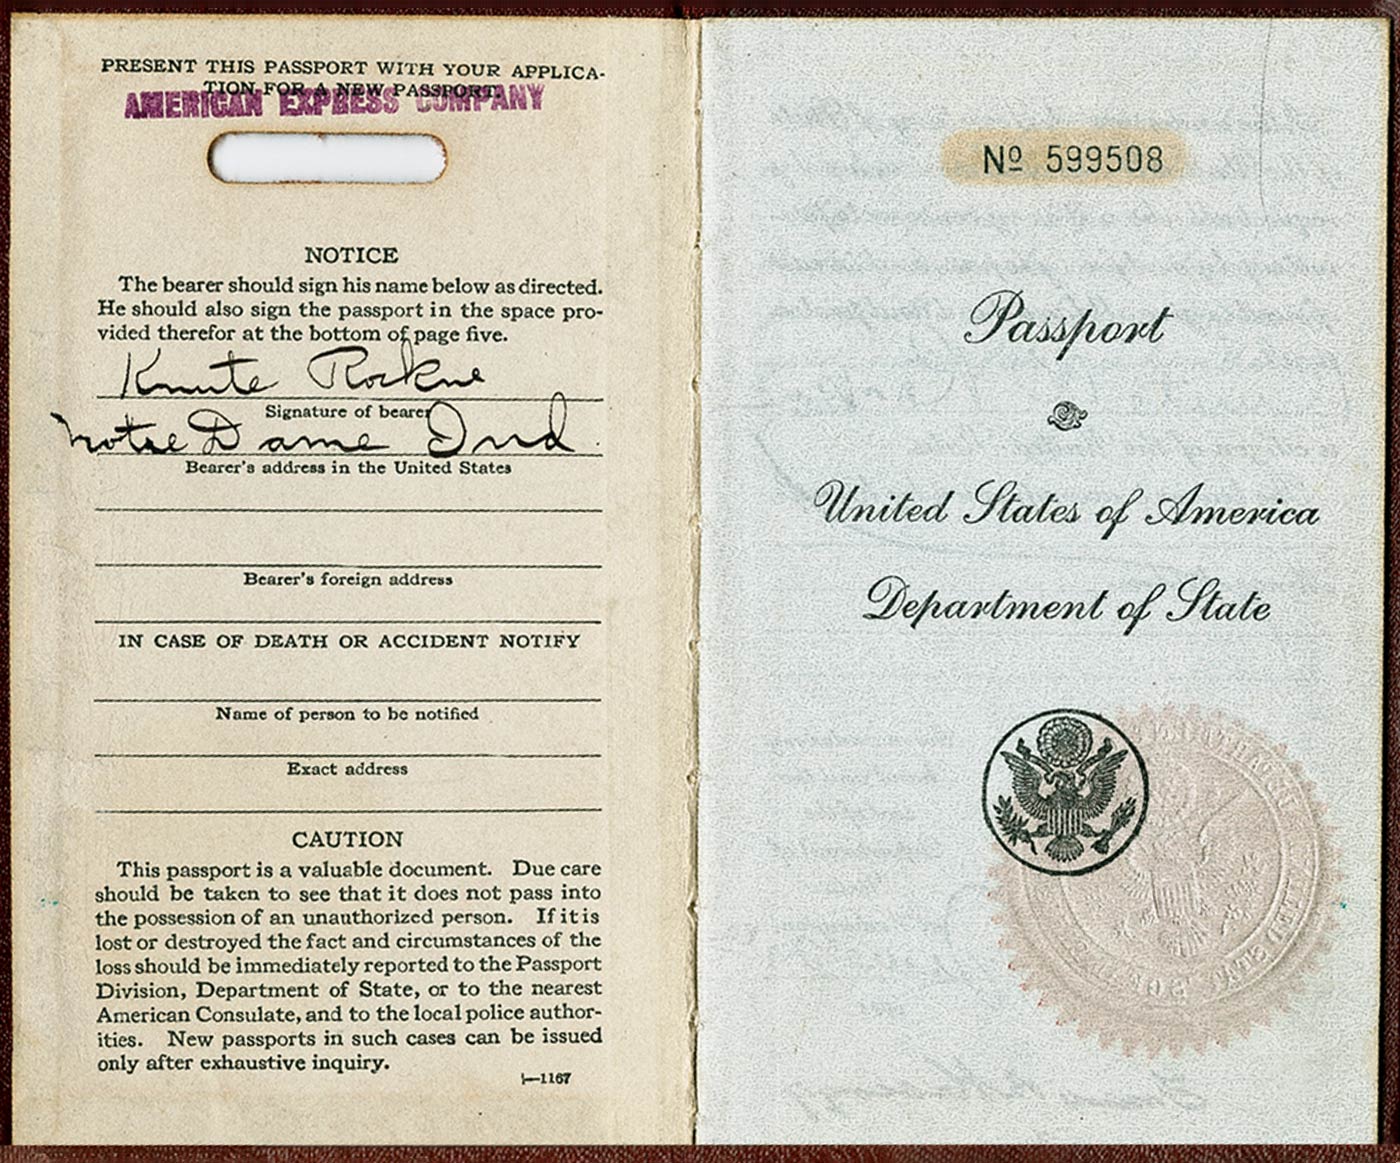 PRESENT THIS PASSPORT WITH YOUR APPLICA-
TION FOR A NEW PASSPORT.
AMERICAN EXPRESS COMPANY
NOTICE
The bearer should sign his name below as directed.
He should also sign the passport in the space pro-
vided therefor at the bottom of page five.
Knute Rockne
Signature of bearer
Notre Dame Ind.
Bearer's address in the United States
Bearer's foreign address
IN CASE OF DEATH OR ACCIDENT NOTIFY
Name of person to be notified
Exact address
CAUTION
This passport is a valuable document. Due care
should be taken to see that it does not pass into
the possession of an unauthorized person. If it is
lost or destroyed the fact and circumstances of the
loss should be immediately reported to the Passport
Division, Department of State, or to the nearest
American Consulate, and to the local police author-
ities. New passports in such cases can be issued
only after exhaustive inquiry.
1—1167
Nº 599508
Passport
United States of America
Department of State